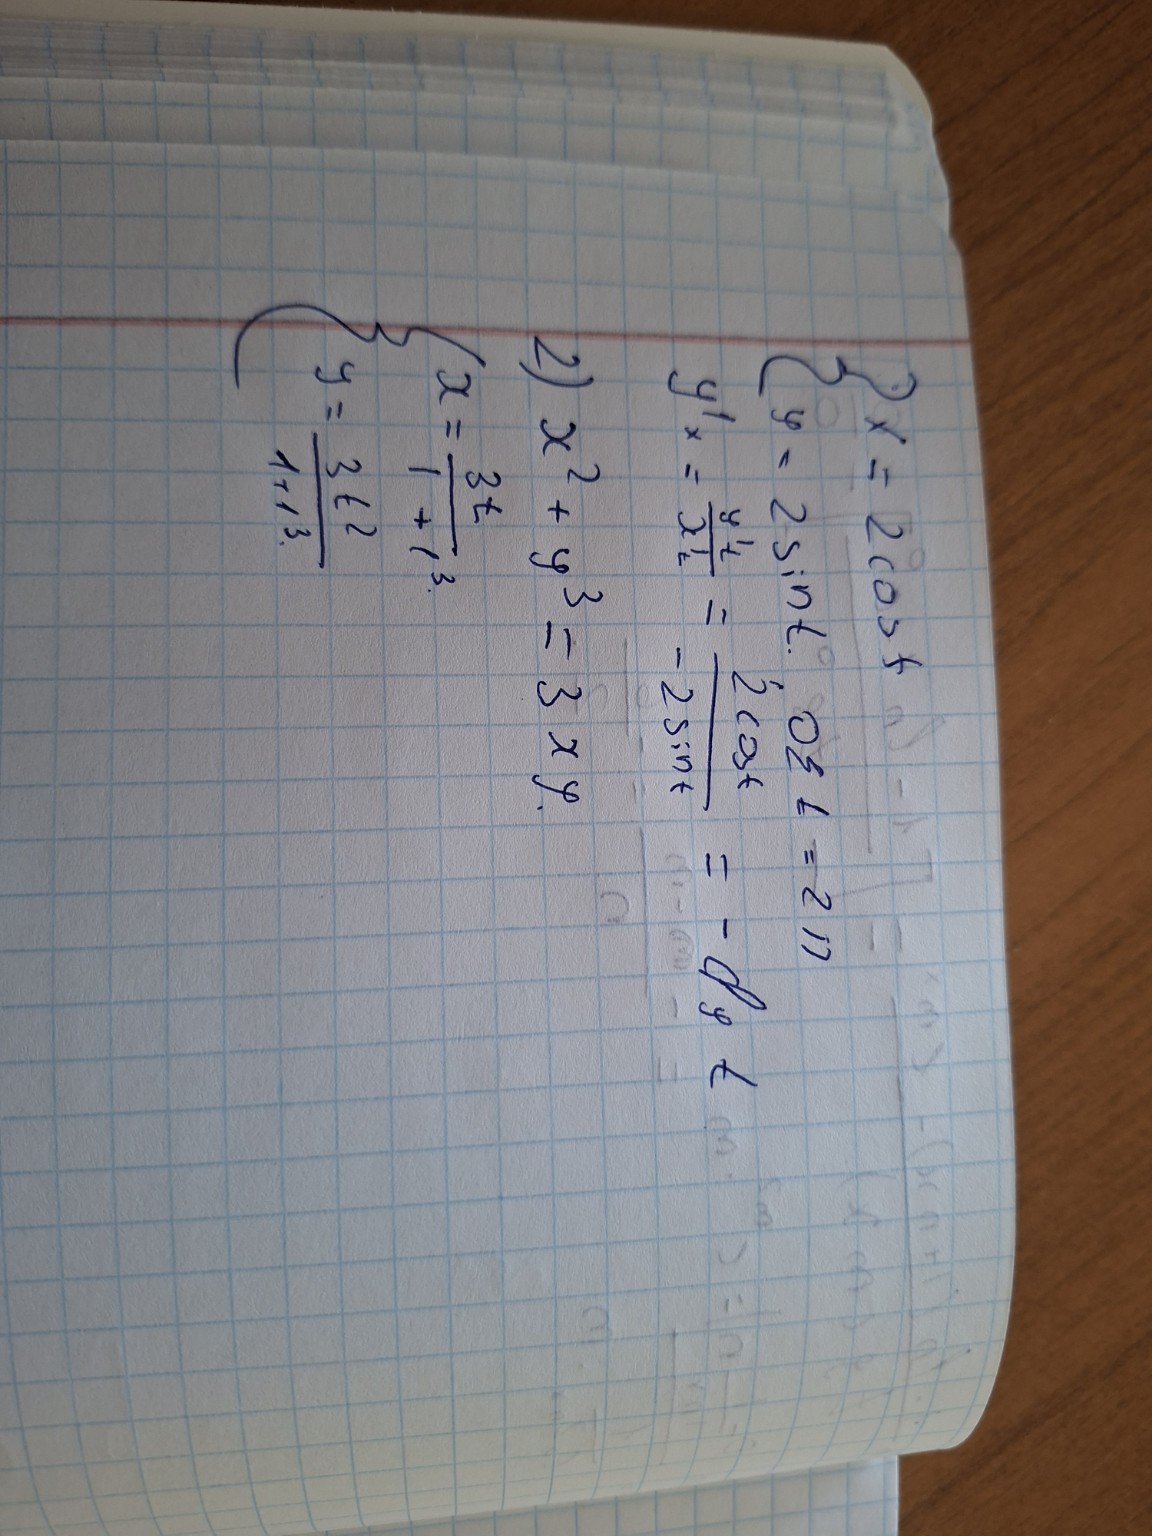 x = 2cost
y = 2sint. 0≤ t = 2π
y'x = y't/x't = 2cost/-2sint = -ctg t
2) x² + y³ = 3xy.
x = 3t/1+t³.
y = 3t²/1+t³.